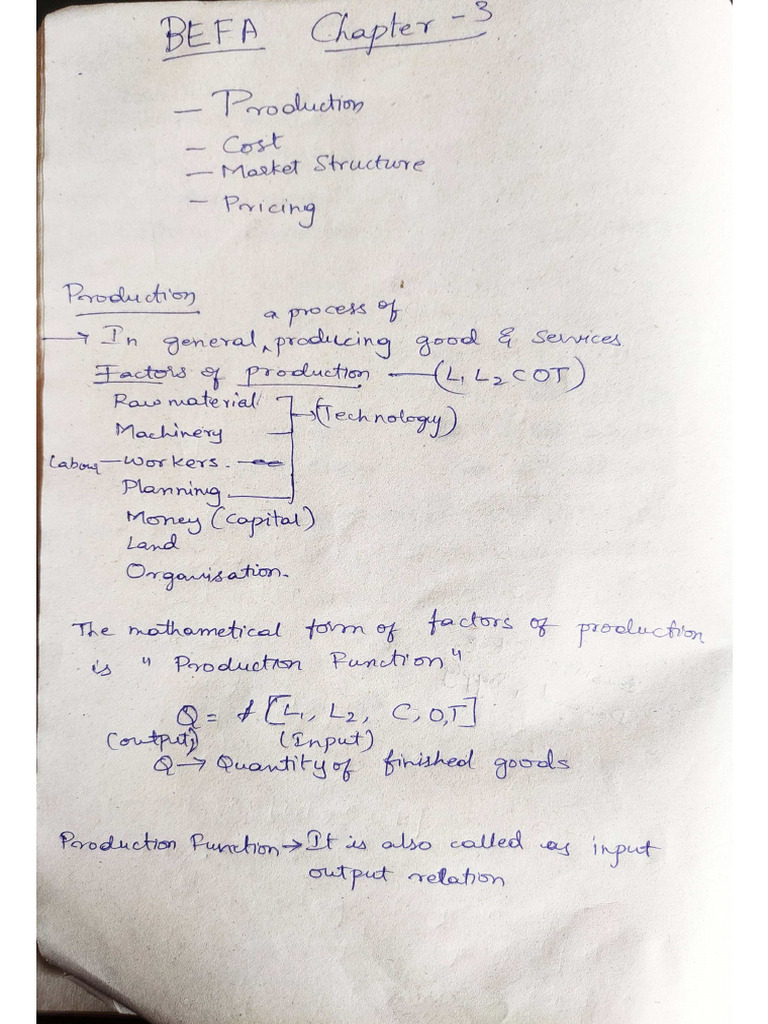 BEFA Chapter - 3
– Production
– Cost
– Market Structure
– Pricing
Production
a process of
→ In general, producing good & services
Factors of production — (L1 L2 C O T)
Raw material
→ (Technology)
Machinery
Labour – workers.
Planning
Money (Capital)
Land
Organisation.
The mathametical form of factors of production
is " Production Function "
Q = f [L1, L2, C, O, T]
(output) (Input)
Q → Quantity of finished goods
Production Function → It is also called as input
output relation